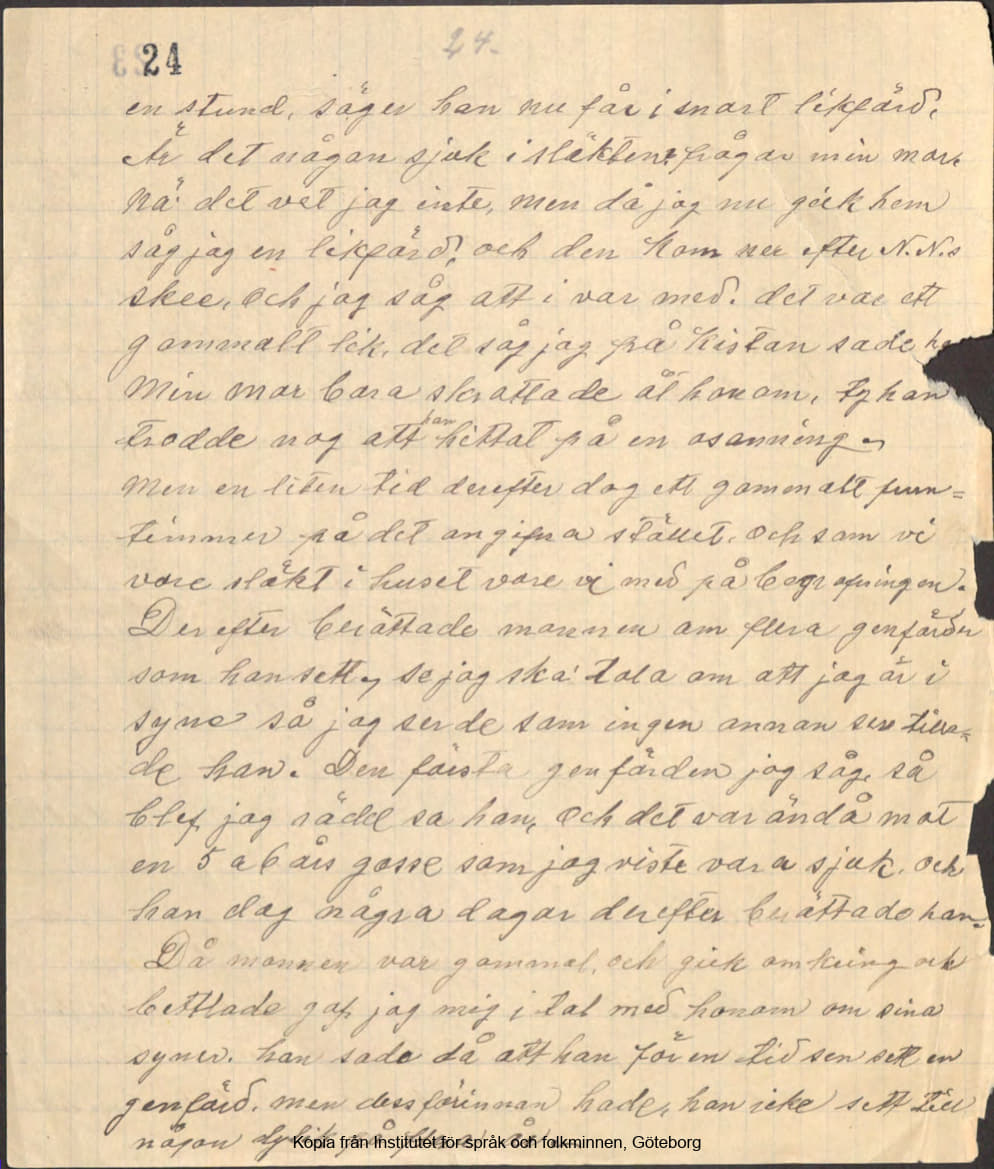 24
24.
en stund, säger han nu får i snart likfärd.
Är det någon sjuk i släkten? frågar min mor.
Nä' det vet jag inte, men då jag nu gick hem
såg jag en likfärd, och den kom ner efter N.N.s
skee, och jag såg att i var med. det var ett
gammalt lik, det såg jag på kistan sade
Min mor bara skrattade åt honom, ty han
trodde nog att han hittat på en osanning.
Men en liten tid derefter dog ett gammalt frun=
timmer på det angifna stället. Och som vi
vore släkt i huset vore vi med på begrafningen.
Derefter berättade mannen om flera genfärder
som han sett, se jag ska' tala om att jag är i
syne så jag ser de som ingen annan ser
de han. Den första genfärden jag såg, så
blef jag rädd sa han, Och det var ändå mot
en 5 a 6 års gosse som jag viste vara sjuk, och
han dog några dagar derefter berättade han.
Då mannen var gammal, och gick omkring och
bettlade gaf jag mig i tal med honom om sina
syner. han sade då att han för en tid sen sett en
genfärd. men dessförinnan hade, han icke sett till
någon
Kopia från Institutet för språk och folkminnen, Göteborg